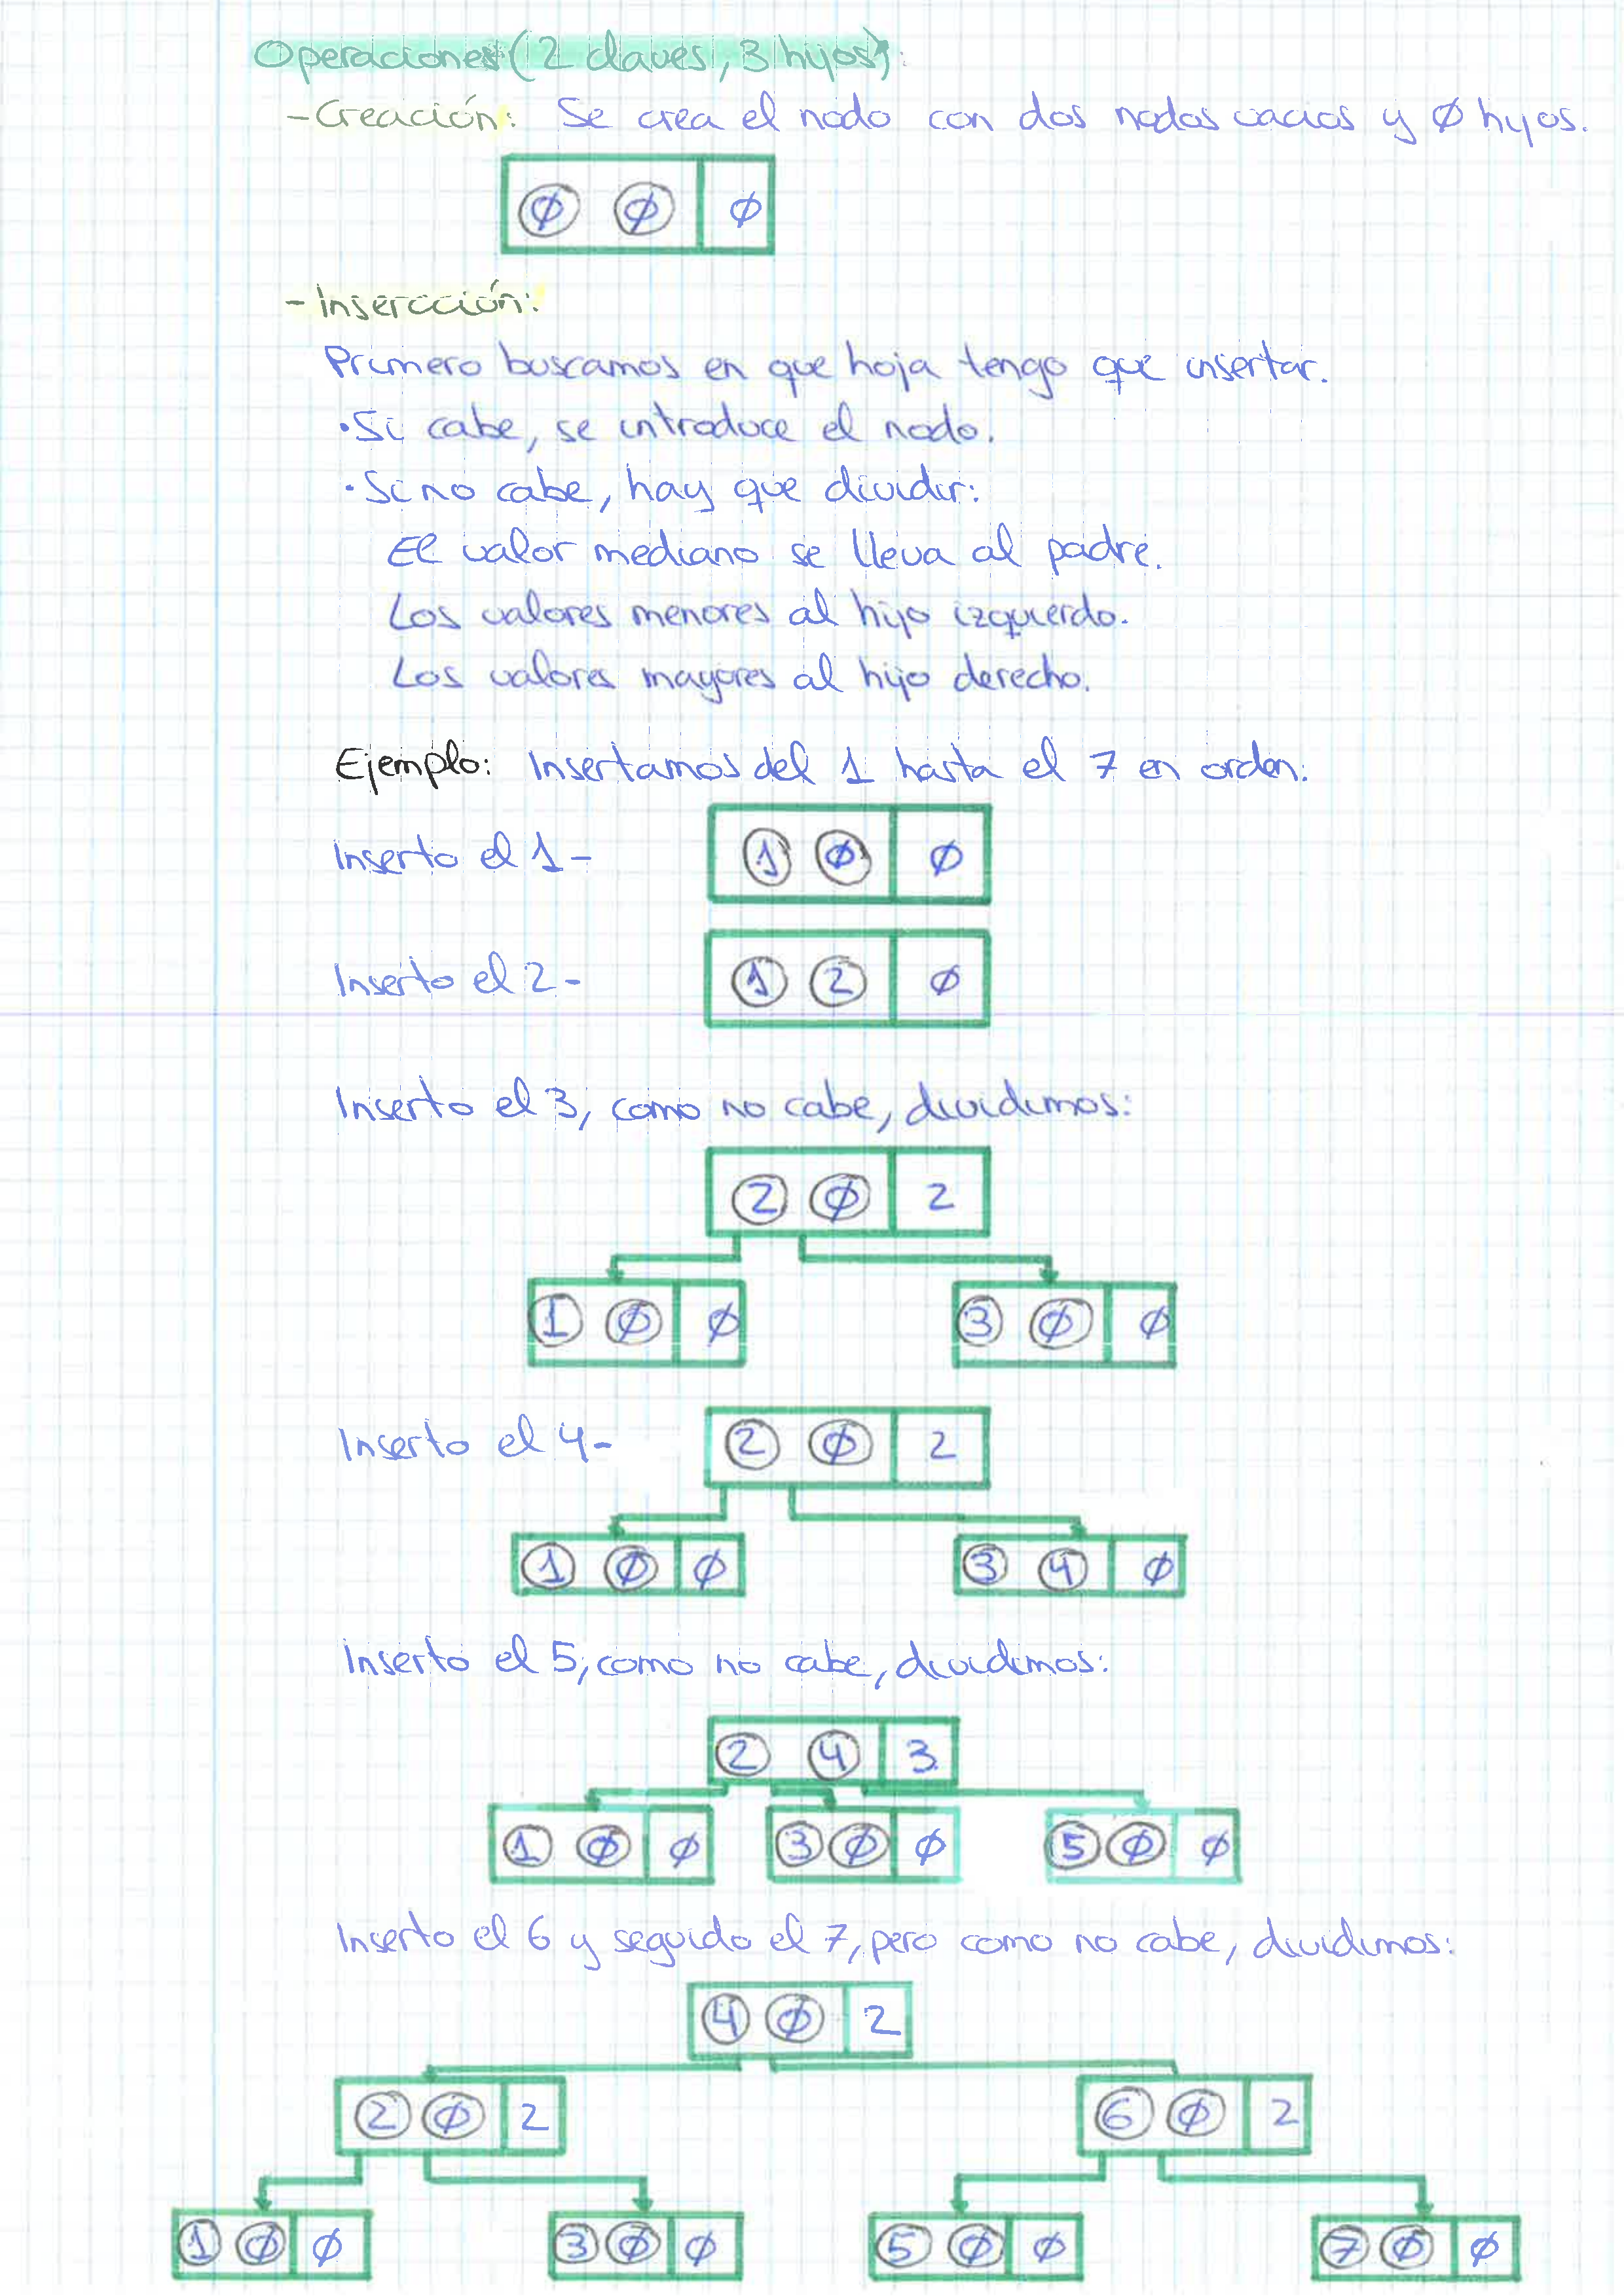 Operaciones (2 claves, 3 hijos):
- Creación: Se crea el nodo con dos nodos vacios y Ø hijos.
Ø Ø Ø
- Insercción:
Primero buscamos en que hoja tengo que insertar.
· Si cabe, se introduce el nodo.
· Si no cabe, hay que dividir:
El valor mediano se lleva al padre.
Los valores menores al hijo izquierdo.
Los valores mayores al hijo derecho.
Ejemplo: Insertamos del 1 hasta el 7 en orden:
Inserto el 1 - 1 Ø Ø
Inserto el 2 - 1 2 Ø
Inserto el 3, como no cabe, dividimos:
2 Ø 2
1 Ø Ø 3 Ø Ø
Inserto el 4 - 2 Ø 2
1 Ø Ø 3 4 Ø
Inserto el 5, como no cabe, dividimos:
2 4 3
1 Ø Ø 3 Ø Ø 5 Ø Ø
Inserto el 6 y seguido el 7, pero como no cabe, dividimos:
4 Ø 2
2 Ø 2 6 Ø 2
1 Ø Ø 3 Ø Ø 5 Ø Ø 7 Ø Ø